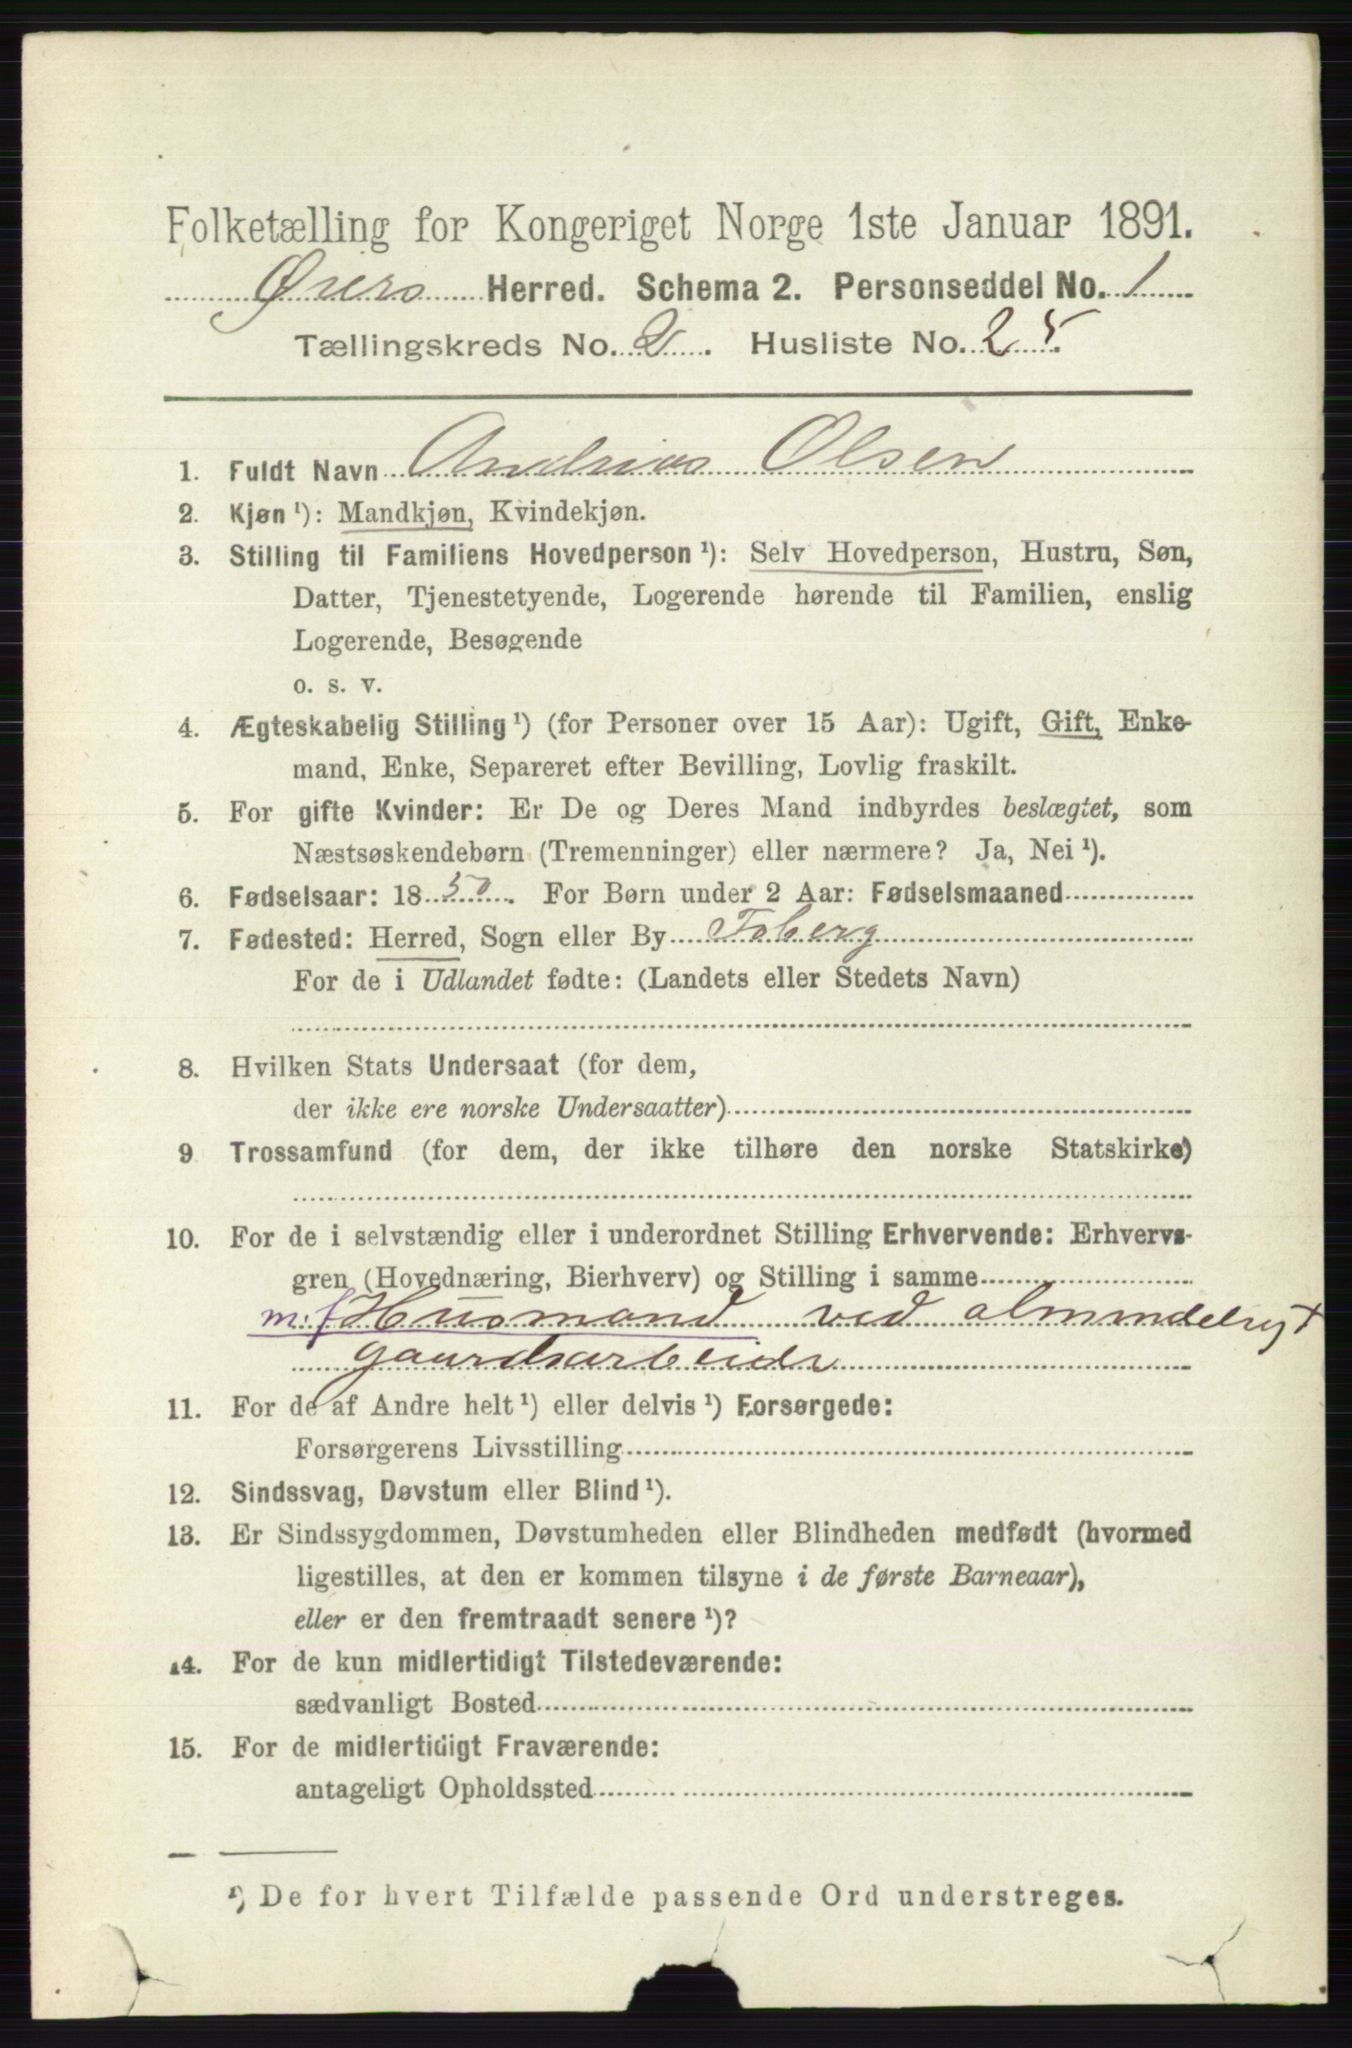 Folketælling for Kongeriget Norge 1ste Januar 1891.
Øiers Herred. Schema 2. Personseddel No. 1
Tællingskreds No. 2. Husliste No. 25.
1. Fuldt Navn Andreas Olsen
2. Kjøn ¹): Mandkjøn, Kvindekjøn.
3. Stilling til Familiens Hovedperson ¹): Selv Hovedperson, Hustru, Søn,
Datter, Tjenestetyende, Logerende hørende til Familien, enslig
Logerende, Besøgende
o. s. v.
4. Ægteskabelig Stilling ¹) (for Personer over 15 Aar): Ugift, Gift, Enke-
mand, Enke, Separeret efter Bevilling, Lovlig fraskilt.
5. For gifte Kvinder: Er De og Deres Mand indbyrdes beslægtet, som
Næstsøskendebørn (Tremenninger) eller nærmere? Ja, Nei ¹).
6. Fødselsaar: 1850. For Børn under 2 Aar: Fødselsmaaned
7. Fødested: Herred, Sogn eller By Foberg
For de i Udlandet fødte: (Landets eller Stedets Navn)
8. Hvilken Stats Undersaat (for dem,
der ikke ere norske Undersaatter)
9 Trossamfund (for dem, der ikke tilhøre den norske Statskirke)
10. For de i selvstændig eller i underordnet Stilling Erhvervende: Erhvervs-
gren (Hovednæring, Bierhverv) og Stilling i samme
m.f Husmand ved almindeligt
gaardsarbeide
11. For de af Andre helt ¹) eller delvis ¹) Forsørgede:
Forsørgerens Livsstilling
12. Sindssvag, Døvstum eller Blind ¹).
13. Er Sindssygdommen, Døvstumheden eller Blindheden medfødt (hvormed
ligestilles, at den er kommen tilsyne i de første Barneaar),
eller er den fremtraadt senere ¹)?
14. For de kun midlertidigt Tilstedeværende:
sædvanligt Bosted
15. For de midlertidigt Fraværende:
antageligt Opholdssted
¹) De for hvert Tilfælde passende Ord understreges.